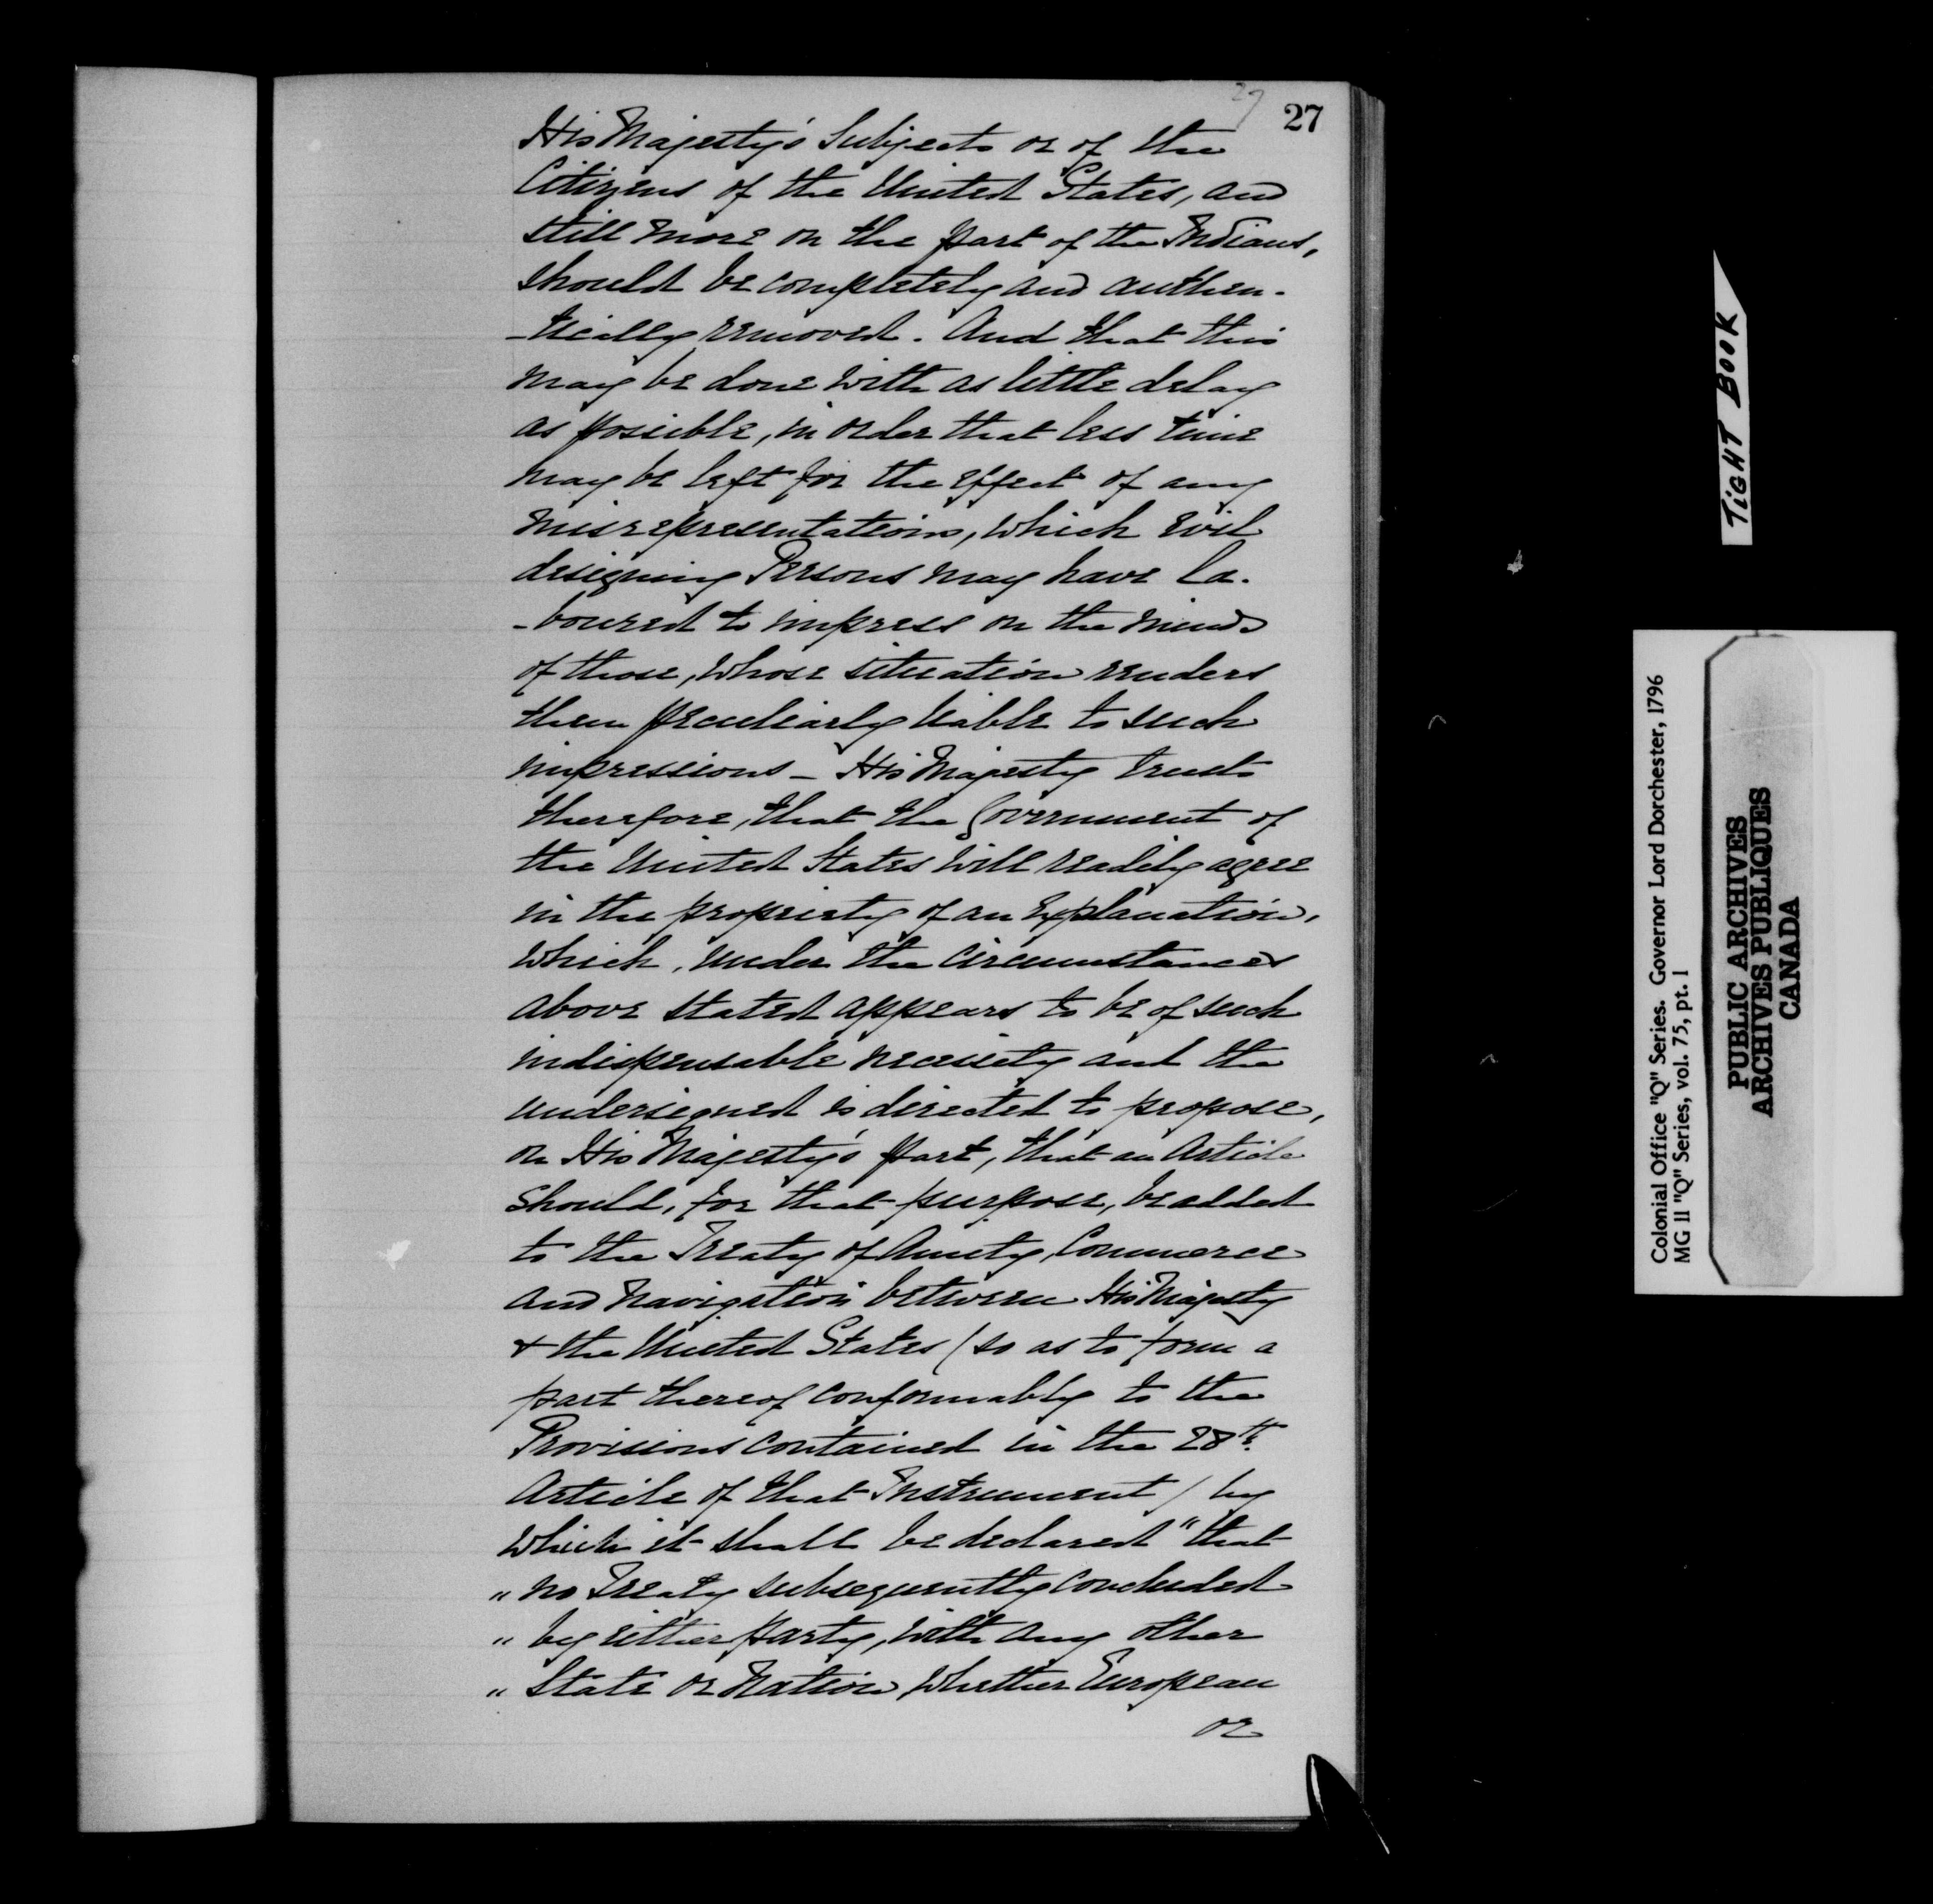 27
27
His Majesty's Subjects or of the
Citizens of the United States, and
still more on the part of the Indians,
should be completely and authen-
-tically removed. And that this
may be done with as little delay
as possible, in order that less time
may be left for the effect of any
misrepresentations, which evil
designing Persons may have la-
-boured to impress on the minds
of those, whose situation renders
them peculiarly liable to such
impressions - His Majesty trusts
therefore, that the Government of
the United States will readily agree
in the propriety of an Explanation,
which, under the circumstances
above stated appears to be of such
indispensable necessity and the
undersigned is directed to propose,
on His Majesty's part, that an Article
should, for that purpose, be added
to the Treaty of Amity, Commerce
and Navigation between His Majesty
& the United States (so as to form a
part thereof conformably to the
Provisions contained in the 28th
Article of that Instrument) by
which it shall be declared "that
" no Treaty subsequently concluded
" by either party, with any other
" State or Nation, whether European
or
TIGHT BOOK
Colonial Office "Q" Series. Governor Lord Dorchester, 1796
MG 11 "Q" Series, vol. 75, pt. 1
PUBLIC ARCHIVES
ARCHIVES PUBLIQUES
CANADA